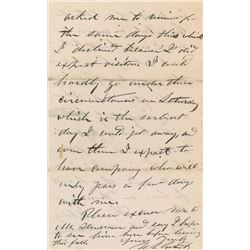 asked me to
the same days this which
I declined because I did
expect visitors. I could
hardly go under these
circumstances on Saturday
which is the earliest
day I could get away, and
even then I expect to
leave company who will
only pass a few days
with me.
Please excuse me to
Mr. and say I hope
to see him here before leaving
this fall.
Yours Truly